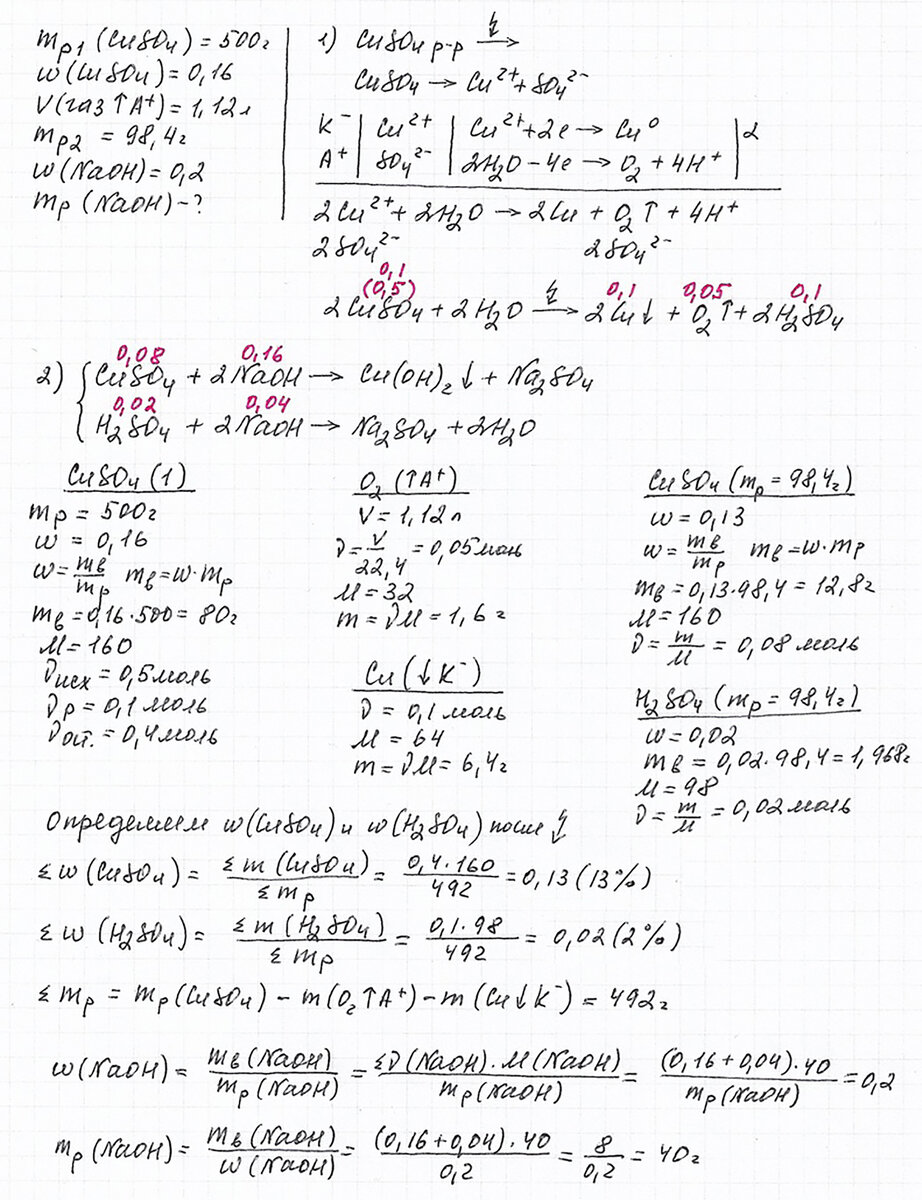 mр1 (CuSO4) = 500г
w(CuSO4) = 0,16
V(газ ↑A⁺) = 1,12л
mр2 = 98,4г
w(NaOH) = 0,2
mр (NaOH) - ?
1) CuSO4 р-р ↯→
CuSO4 → Cu²⁺ + SO4²⁻
K⁻ | Cu²⁺ | Cu²⁺ + 2e → Cu⁰ | 2
A⁺ | SO4²⁻ | 2H2O - 4e → O2 + 4H⁺
2Cu²⁺ + 2H2O → 2Cu + O2↑ + 4H⁺
2SO4²⁻ 2SO4²⁻
0,1
(0,5) 0,1 0,05 0,1
2CuSO4 + 2H2O ↯→ 2Cu↓ + O2↑ + 2H2SO4
0,08 0,16
2) { CuSO4 + 2NaOH → Cu(OH)2↓ + Na2SO4
0,02 0,04
H2SO4 + 2NaOH → Na2SO4 + 2H2O
CuSO4 (1)
mр = 500г
w = 0,16
w = mв/mр mв = w·mр
mв = 0,16·500 = 80г
M = 160
νисх = 0,5моль
νр = 0,1моль
νост. = 0,4моль
O2 (↑A⁺)
V = 1,12л
ν = V/22,4 = 0,05моль
M = 32
m = νM = 1,6г
Cu (↓K⁻)
ν = 0,1моль
M = 64
m = νM = 6,4г
CuSO4 (mр = 98,4г)
w = 0,13
w = mв/mр mв = w·mр
mв = 0,13·98,4 = 12,8г
M = 160
ν = m/M = 0,08моль
H2SO4 (mр = 98,4г)
w = 0,02
mв = 0,02·98,4 = 1,968г
M = 98
ν = m/M = 0,02моль
Определяем w(CuSO4) и w(H2SO4) после ↯
Σw (CuSO4) = Σm (CuSO4)/Σmр = 0,4·160/492 = 0,13 (13%)
Σw (H2SO4) = Σm (H2SO4)/Σmр = 0,1·98/492 = 0,02 (2%)
Σmр = mр(CuSO4) - m(O2↑A⁺) - m(Cu↓K⁻) = 492г
w(NaOH) = mв(NaOH)/mр(NaOH) = Σν(NaOH)·M(NaOH)/mр(NaOH) = (0,16+0,04)·40/mр(NaOH) = 0,2
mр (NaOH) = mв(NaOH)/w(NaOH) = (0,16+0,04)·40/0,2 = 8/0,2 = 40г